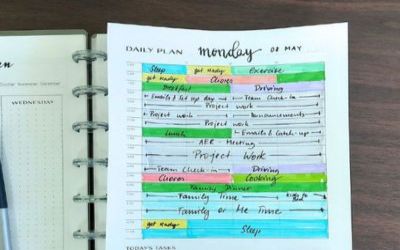 DAILY PLAN monday 08 MAY
Sleep get ready Exercise
get ready Chores
Breakfast Driving
Emails & set up day Team Check-in
Project work
Project work Announcements
Project work
Lunch Emails & Catch-up
AER - Meeting
Project Work
Team Check-in Driving
Chores Cooking
Family Dinner
Family Time Kids to Bed
Family or Me Time
get ready Sleep
TODAY'S TASKS
WEDNESDAY